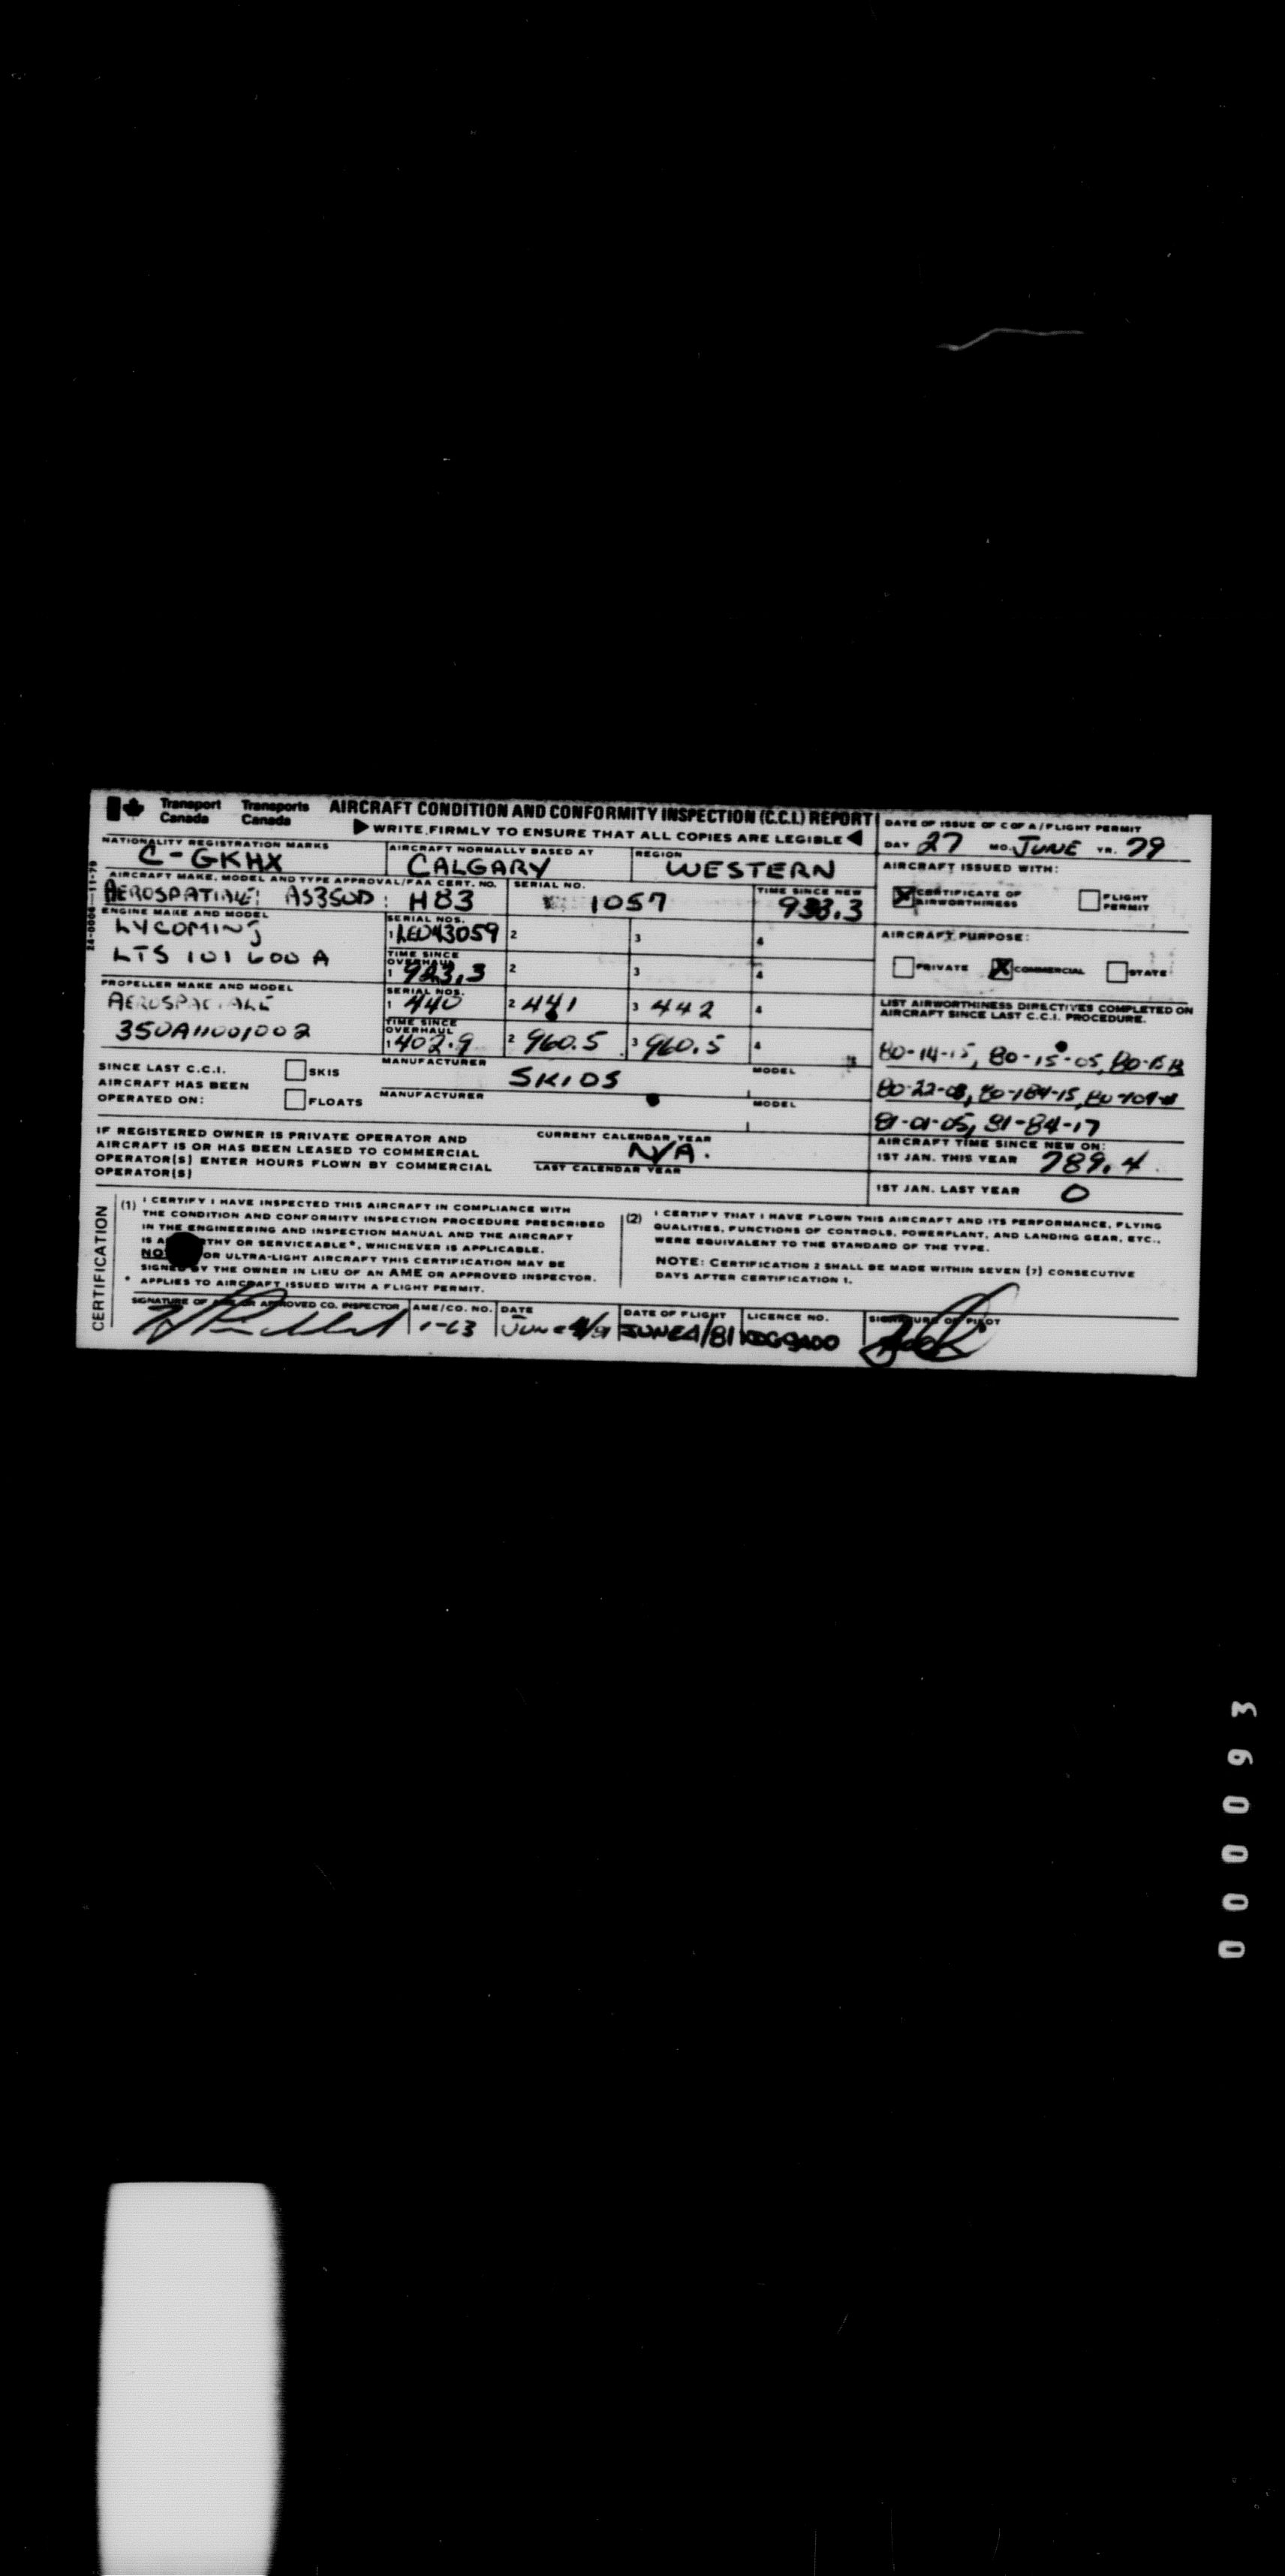 Transport Canada Transports Canada AIRCRAFT CONDITION AND CONFORMITY INSPECTION (C.C.I.) REPORT
▶ WRITE FIRMLY TO ENSURE THAT ALL COPIES ARE LEGIBLE ◀
DATE OF ISSUE OF C OF A/FLIGHT PERMIT
DAY 27 MO. JUNE YR. 79
NATIONALITY REGISTRATION MARKS
C-GKHX
AIRCRAFT NORMALLY BASED AT
CALGARY
REGION
WESTERN
AIRCRAFT ISSUED WITH:
CERTIFICATE OF AIRWORTHINESS
FLIGHT PERMIT
AIRCRAFT MAKE, MODEL AND TYPE APPROVAL/FAA CERT. NO.
AS350D H83
SERIAL NO.
1057
TIME SINCE NEW
933.3
24-0006—11-79
ENGINE MAKE AND MODEL
LYCOMING
LTS 101 600 A
SERIAL NOS.
1 2 3 4
TIME SINCE OVERHAUL
1 923.3 2 3 4
AIRCRAFT PURPOSE:
PRIVATE COMMERCIAL STATE
PROPELLER MAKE AND MODEL
AEROSPACIALE
350A11001002
SERIAL NOS.
1 440 2 441 3 442 4
TIME SINCE OVERHAUL
1 402.9 2 960.5 3 960.5 4
LIST AIRWORTHINESS DIRECTIVES COMPLETED ON
AIRCRAFT SINCE LAST C.C.I. PROCEDURE.
80-14-15, 80-15-05,
81-01-05, 81-84-17
SINCE LAST C.C.I.
AIRCRAFT HAS BEEN
OPERATED ON:
SKIS
FLOATS
MANUFACTURER
SKIDS
MODEL
MANUFACTURER
MODEL
IF REGISTERED OWNER IS PRIVATE OPERATOR AND
AIRCRAFT IS OR HAS BEEN LEASED TO COMMERCIAL
OPERATOR(S) ENTER HOURS FLOWN BY COMMERCIAL
OPERATOR(S)
CURRENT CALENDAR YEAR
N/A.
LAST CALENDAR YEAR
AIRCRAFT TIME SINCE NEW ON:
1ST JAN. THIS YEAR 789.4
1ST JAN. LAST YEAR 0
CERTIFICATION
(1) I CERTIFY I HAVE INSPECTED THIS AIRCRAFT IN COMPLIANCE WITH
THE CONDITION AND CONFORMITY INSPECTION PROCEDURE PRESCRIBED
IN THE ENGINEERING AND INSPECTION MANUAL AND THE AIRCRAFT
IS OR SERVICEABLE*, WHICHEVER IS APPLICABLE.
OR ULTRA-LIGHT AIRCRAFT THIS CERTIFICATION MAY BE
SIGNED BY THE OWNER IN LIEU OF AN AME OR APPROVED INSPECTOR.
* APPLIES TO AIRCRAFT ISSUED WITH A FLIGHT PERMIT.
(2) I CERTIFY THAT I HAVE FLOWN THIS AIRCRAFT AND ITS PERFORMANCE, FLYING
QUALITIES, FUNCTIONS OF CONTROLS, POWERPLANT, AND LANDING GEAR, ETC.,
WERE EQUIVALENT TO THE STANDARD OF THE TYPE.
NOTE: CERTIFICATION 2 SHALL BE MADE WITHIN SEVEN (7) CONSECUTIVE
DAYS AFTER CERTIFICATION 1.
SIGNATURE OF APPROVED CO. INSPECTOR
AME/CO. NO.
1-63
DATE
DATE OF FLIGHT
JUNE 4/81
LICENCE NO.
SIGNATURE OF PILOT
000093